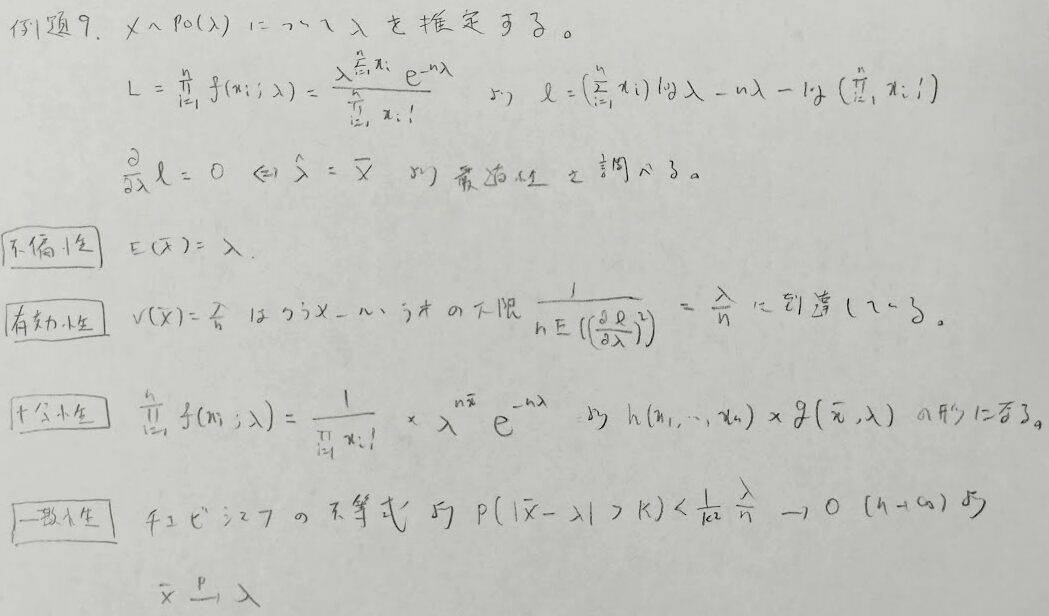 例題9. X~Po(λ) について λ を推定する。
L = ∏_{i=1}^{n} f(x_i; λ) = λ^{∑_{i=1}^{n} x_i} e^{-nλ} / ∏_{i=1}^{n} x_i! より l = (∑_{i=1}^{n} x_i) log λ - nλ - log (∏_{i=1}^{n} x_i!)
∂/∂λ l = 0 ⇔ λ̂ = x̄ より 最適性を調べる。
不偏性 E(x̄) = λ.
有効性 V(x̄) = λ/n はクラメールラオの下限 1 / (n E((∂l/∂λ)^2)) = λ/n に到達している。
十分性 ∏_{i=1}^{n} f(x_i; λ) = 1 / ∏_{i=1}^{n} x_i! × λ^{nx̄} e^{-nλ} より h(x_1, …, x_n) × g(x̄, λ) の形になる。
一致性 チェビシェフの不等式より P(|x̄ - λ| > k) < 1/k^2 λ/n → 0 (n→∞) より
x̄ →^P λ